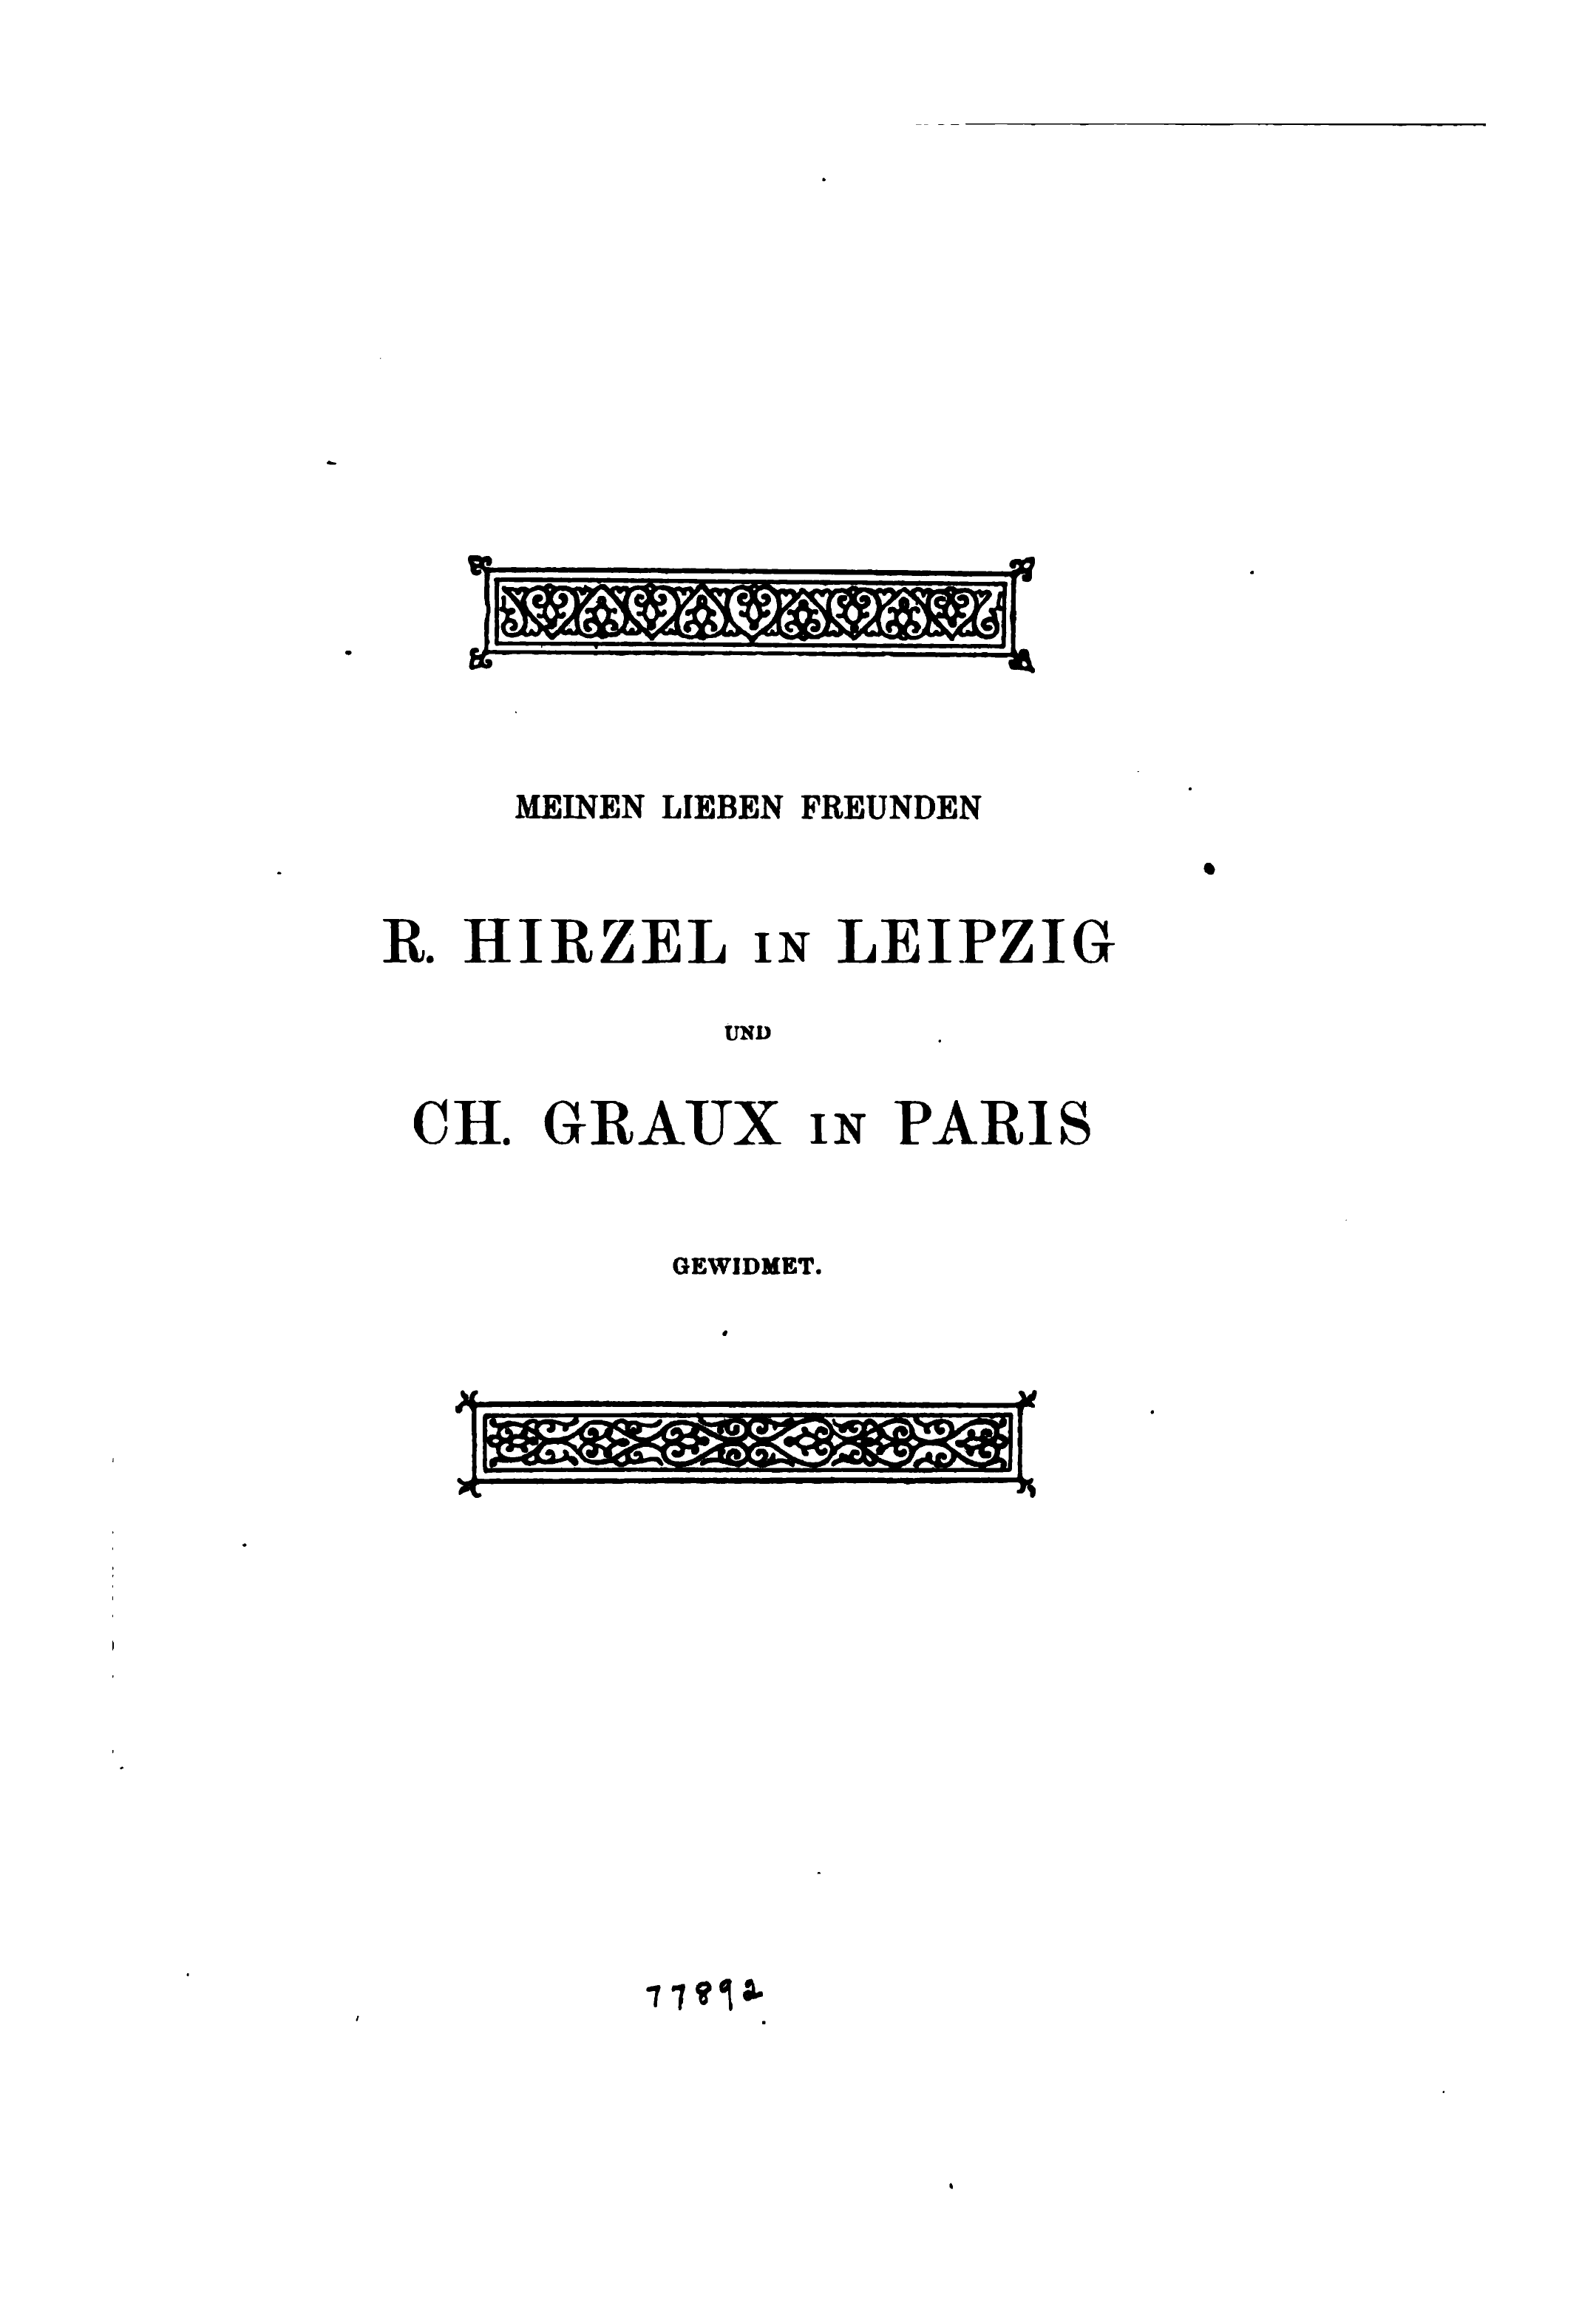 MEINEN LIEBEN FREUNDEN
R. HIRZEL IN LEIPZIG
UND
CH. GRAUX IN PARIS
GEWIDMET.
77892